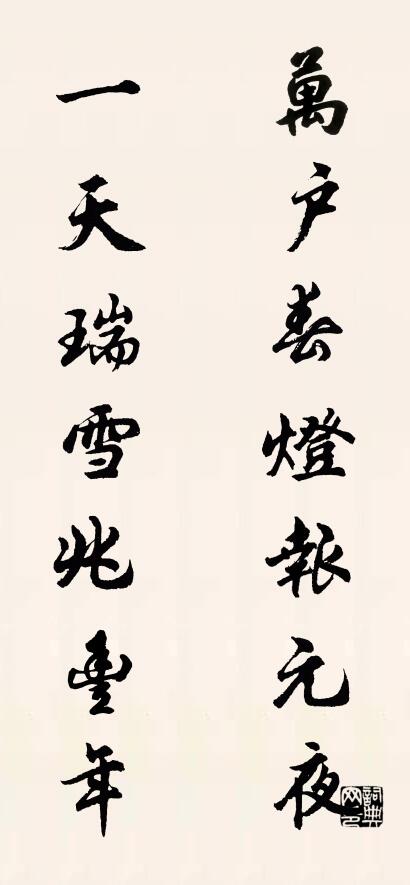 萬户春燈報元夜
一天瑞雪兆豐年
詞典网